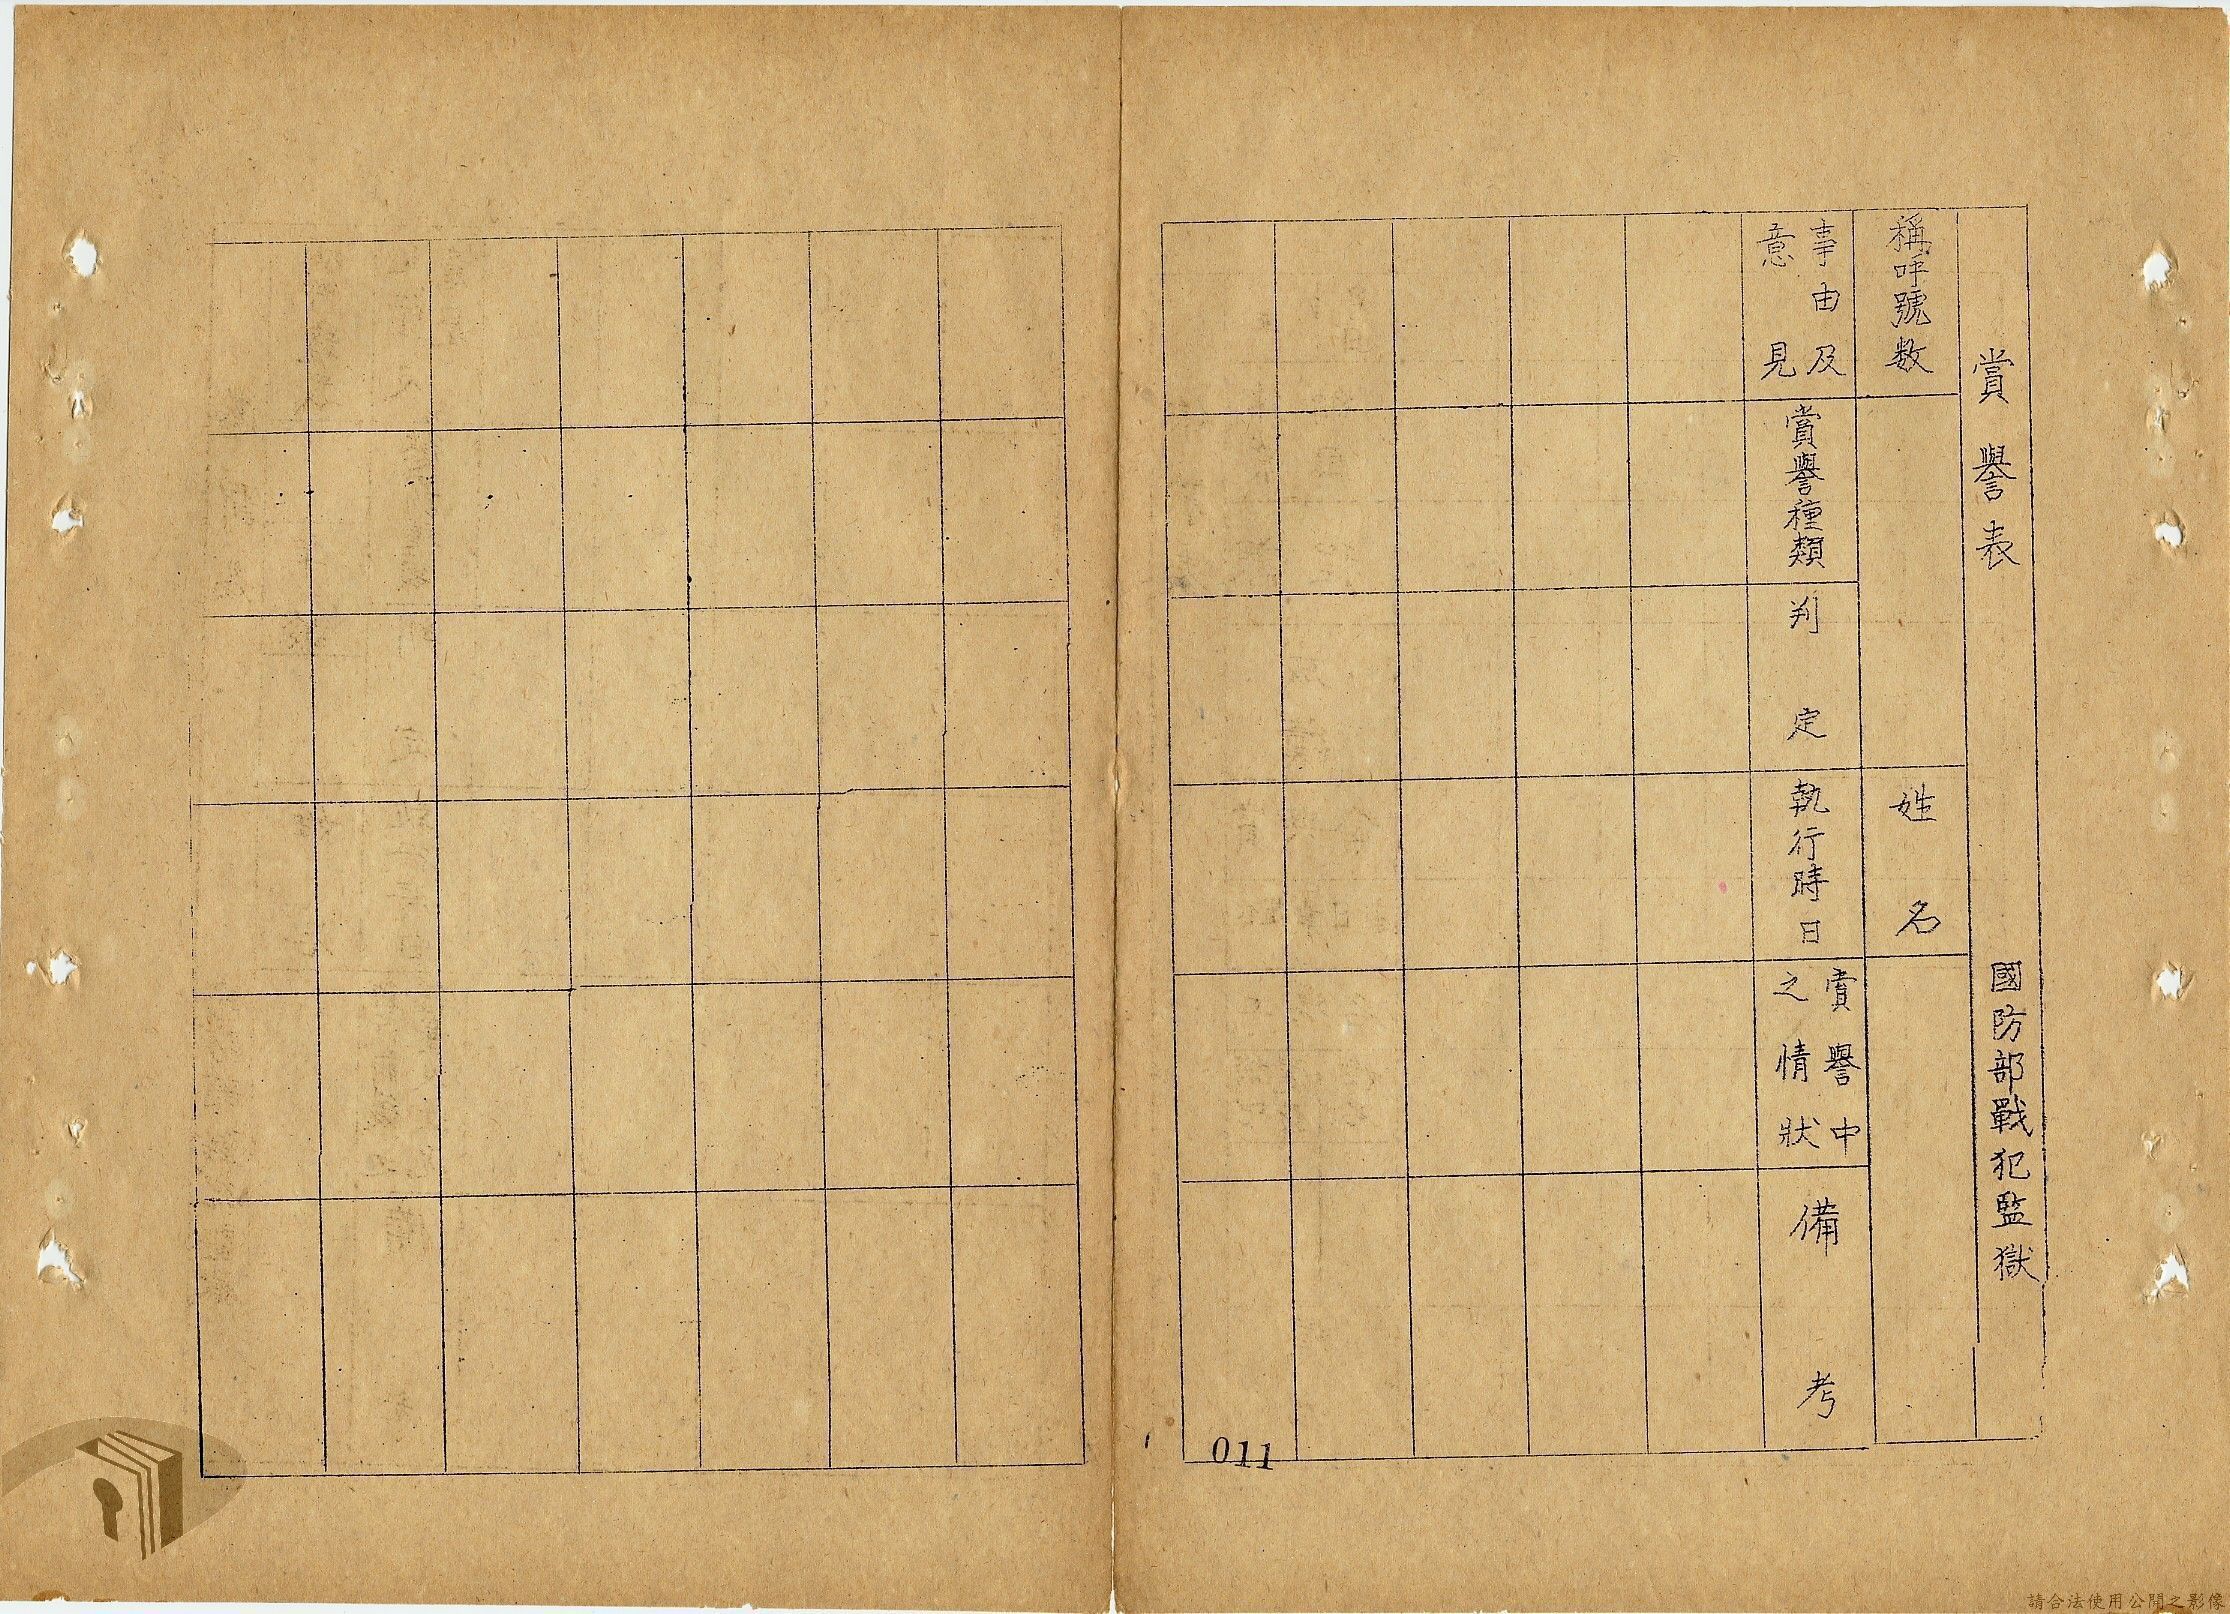 賞譽表
國防部戰犯監獄
稱呼號数
姓名
事由及
意見
賞譽種類
判定
執行時日
賞譽中
之情狀
備考
011
請合法使用公開之影像